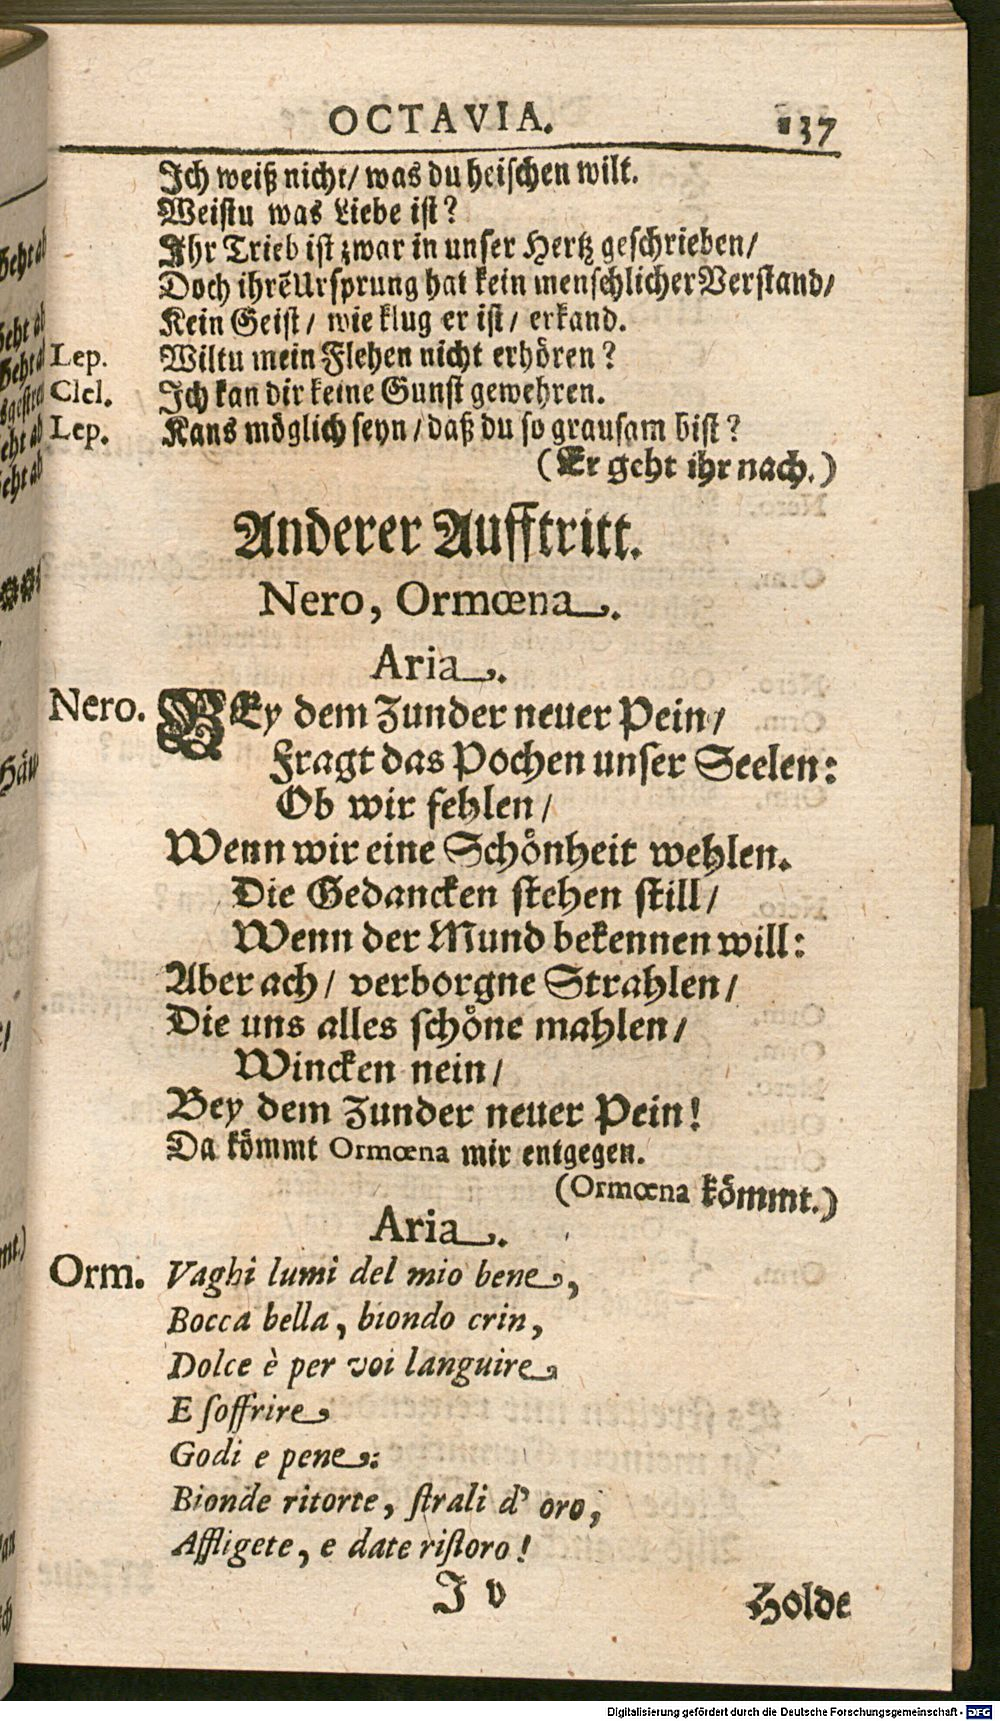 OCTAVIA. 137
Ich weiß nicht/ was du heischen wilt.
Weistu was Liebe ist?
Ihr Trieb ist zwar in unser Hertz geschrieben/
Doch ihrē Ursprung hat kein menschlicher Verstand/
Kein Geist/ wie klug er ist/ erkand.
Lep. Wiltu mein Flehen nicht erhören?
Clel. Ich kan dir keine Gunst gewehren.
Lep. Kans möglich seyn/ daß du so grausam bist?
(Er geht ihr nach.)
Anderer Aufftritt.
Nero, Ormœna.
Aria.
Nero. BEy dem Zunder neuer Pein/
Fragt das Pochen unser Seelen:
Ob wir fehlen/
Wenn wir eine Schönheit wehlen.
Die Gedancken stehen still/
Wenn der Mund bekennen will:
Aber ach/ verborgne Strahlen/
Die uns alles schöne mahlen/
Wincken nein/
Bey dem Zunder neuer Pein!
Da kömmt Ormœna mir entgegen.
(Ormœna kömmt.)
Aria.
Orm. Vaghi lumi del mio bene,
Bocca bella, biondo crin,
Dolce è per voi languire
E soffrire
Godi e pene:
Bionde ritorte, strali d' oro,
Affligete, e date ristoro!
J v Holde
Digitalisierung gefördert durch die Deutsche Forschungsgemeinschaft - DFG